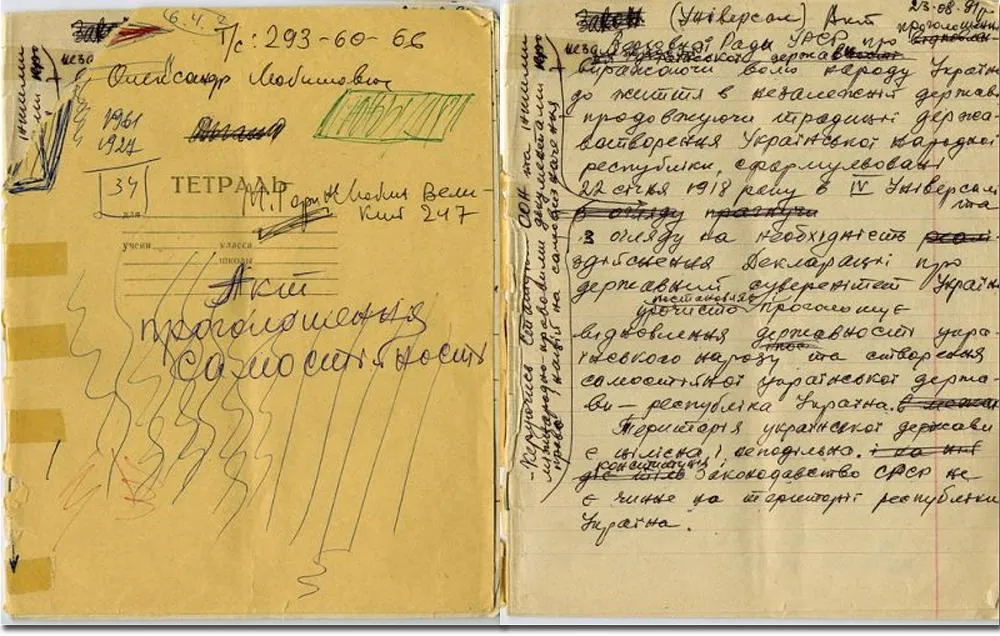 Т/с: 293-60-66
Олександр
1961
1927
34
ТЕТРАДЬ
М. Горинь Любин Вели-
кий 247
для
учени
класса
школы
Акт
проголошення
самостійності
Закон (Універсал) Акт
23.08.91
проголошення
Верховної Ради УРСР про
української держав
виражаючи волю народу Україн
до життя в незалежній держав
продовжуючи традиції держа-
вотворення Української народної
республіки, сформульовані
22 січня 1918 року в IV Універсалі
та
з огляду на необхідність
здійснення Декларації про
державний суверенітет Україн
урочисто проголошує
відновлення державності укра-
їнського народу та створення
самостійної української держа-
ви — республіка Україна.
Територія української держави
є цілісна і неподільна.
конституція і
Законодавство СРСР не
є чинне на території республіки
Україна.
- Керуючись Статутом ООН та іншими
міжнародно-правовими документами про
право націй на самовизначення